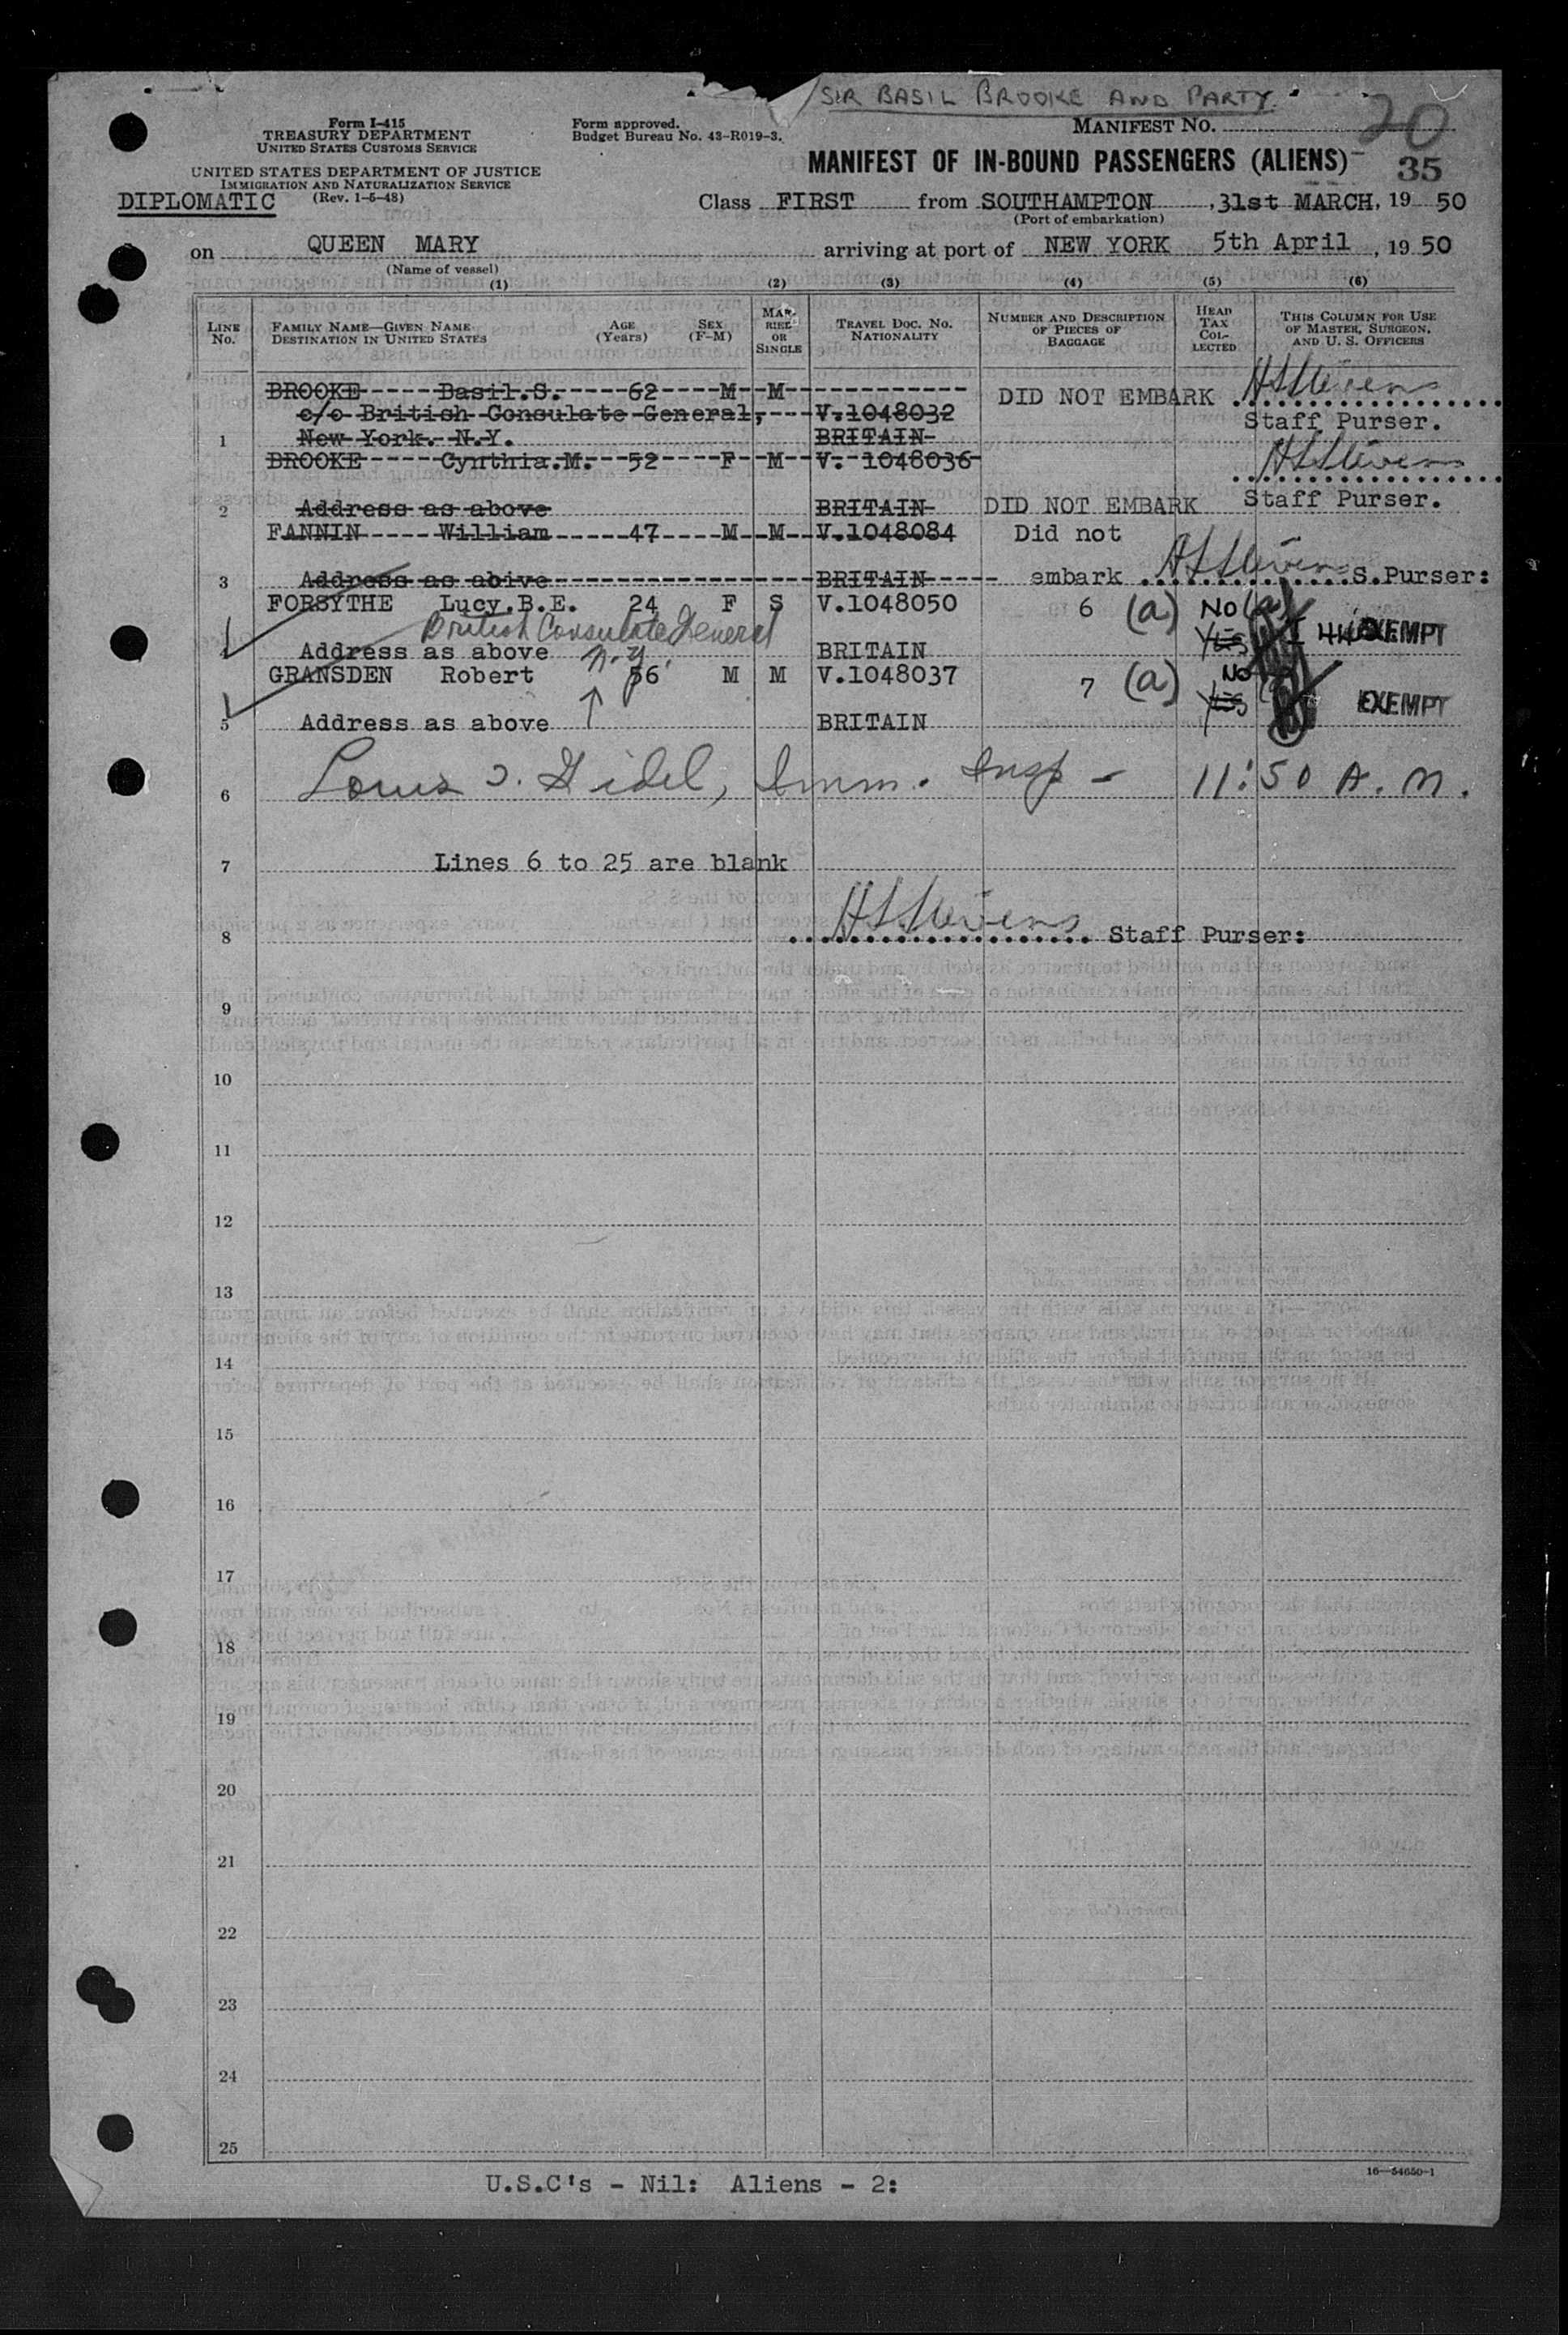 SIR BASIL BROOKE AND PARTY
Form I-415
TREASURY DEPARTMENT
UNITED STATES CUSTOMS SERVICE
UNITED STATES DEPARTMENT OF JUSTICE
IMMIGRATION AND NATURALIZATION SERVICE
(Rev. 1-5-48)
DIPLOMATIC
Form approved.
Budget Bureau No. 43-R019-3.
MANIFEST NO. 20
MANIFEST OF IN-BOUND PASSENGERS (ALIENS) 35
Class FIRST from SOUTHAMPTON , 31st MARCH, 19 50
(Port of embarkation)
on QUEEN MARY arriving at port of NEW YORK 5th April , 19 50
(Name of vessel)
(1) (2) (3) (4) (5) (6)
LINE No.
FAMILY NAME—GIVEN NAME
DESTINATION IN UNITED STATES
AGE (Years)
SEX (F-M)
MARRIED OR SINGLE
TRAVEL DOC. NO. NATIONALITY
NUMBER AND DESCRIPTION OF PIECES OF BAGGAGE
HEAD TAX COLLECTED
THIS COLUMN FOR USE OF MASTER, SURGEON, AND U. S. OFFICERS
BROOKE Basil.S. 62 M M DID NOT EMBARK HSStevens
c/o British Consulate General, V.1048032 Staff Purser.
1 New York. N.Y. BRITAIN
BROOKE Cynthia.M. 52 F M V. 1048036 HSStevens
2 Address as above BRITAIN DID NOT EMBARK Staff Purser.
FANNIN William 47 M M V.1048084 Did not
3 Address as abive BRITAIN embark HSStevens S.Purser:
FORSYTHE Lucy.B.E. 24 F S V.1048050 6 (a) NO (a)
British Consulate General
4 Address as above N.Y. BRITAIN Yes EXEMPT
GRANSDEN Robert 56 M M V.1048037 7 (a) NO
5 Address as above BRITAIN Yes EXEMPT
6 Imm. Insp - 11:50 A.M.
7 Lines 6 to 25 are blank
8 HSStevens Staff Purser:
9
10
11
12
13
14
15
16
17
18
19
20
21
22
23
24
25
16—54650-1
U.S.C's - Nil: Aliens - 2: